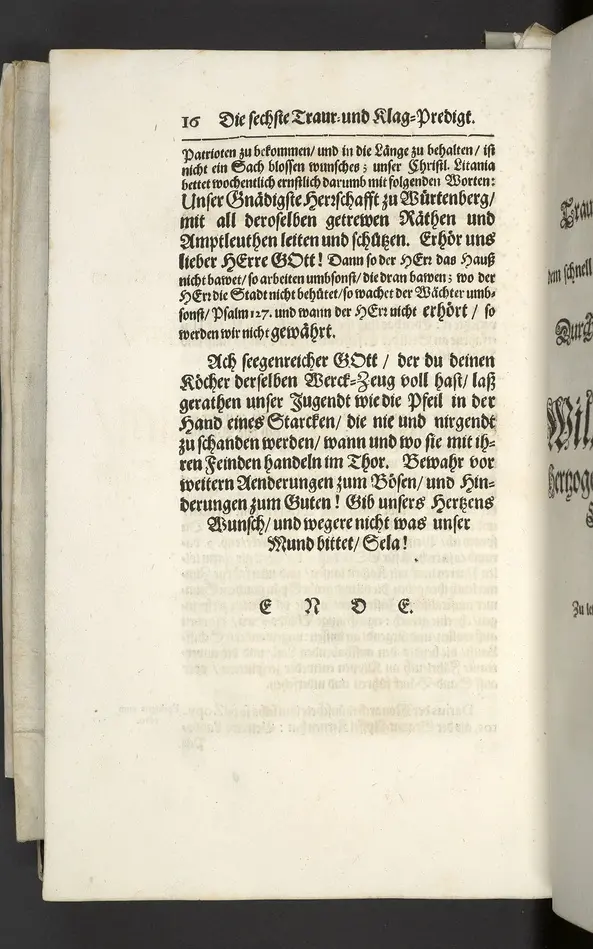 16 Die sechste Traur-und Klag-Predigt.
Patrioten zu bekommen/ und in die Länge zu behalten/ ist
nicht ein Sach blossen wunsches; unser Christl. Litania
bettet wochentlich ernstlich darumb mit folgenden Worten:
Unser Gnädigste Herrschafft zu Würtenberg/
mit all deroselben getrewen Räthen und
Amptleuthen leiten und schützen. Erhör uns
lieber HErre GOtt! Dann so der HErr das Hauß
nicht bawet/ so arbeiten umbsonst/ die dran bawen; wo der
HErr die Stadt nicht behütet/ so wachet der Wächter umb-
sonst/ Psalm 127. und wann der HErr nicht erhört / so
werden wir nicht gewährt.
Ach seegenreicher GOtt / der du deinen
Köcher derselben Werck-Zeug voll hast/ laß
gerathen unser Jugendt wie die Pfeil in der
Hand eines Starcken/ die nie und nirgendt
zu schanden werden/ wann und wo sie mit ih-
ren Feinden handeln im Thor. Bewahr vor
weitern Aenderungen zum Bösen/ und Hin-
derungen zum Guten! Gib unsers Hertzens
Wunsch/ und wegere nicht was unser
Mund bittet/ Sela!
E N D E.
dem schnell
Zu